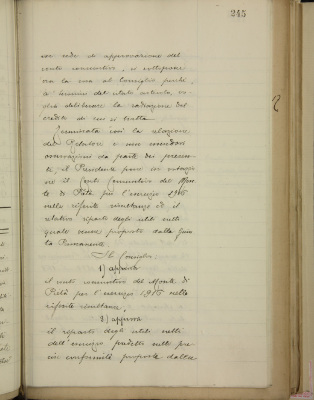 245
in sede di approvazione del
conto consuntivo, e sottopone
ra la cosa al Consiglio perché,
a termini del citato articolo, vo
glia deliberare la radiazione del
credito di cui si tratta.
Terminata così la relazione
del Relatore e non essendovi
osservazioni da parte dei presen
ti, il Presidente pone in votazio
ne il Conto Consuntivo del Mon
te di Pietà per l'esercizio 1916
nelle riferite risultanze ed il
relativo riparto degli utili netti
quale venne proposto dalla Giun
ta Permanente.
Il Consiglio
1) approva
il conto consuntivo del Monte di
Pietà per l'esercizio 1916 nelle
riferite risultanze;
2) approva
il riparto degli utili netti
dell'esercizio predetto nelle pre
cise conformità proposte dalla